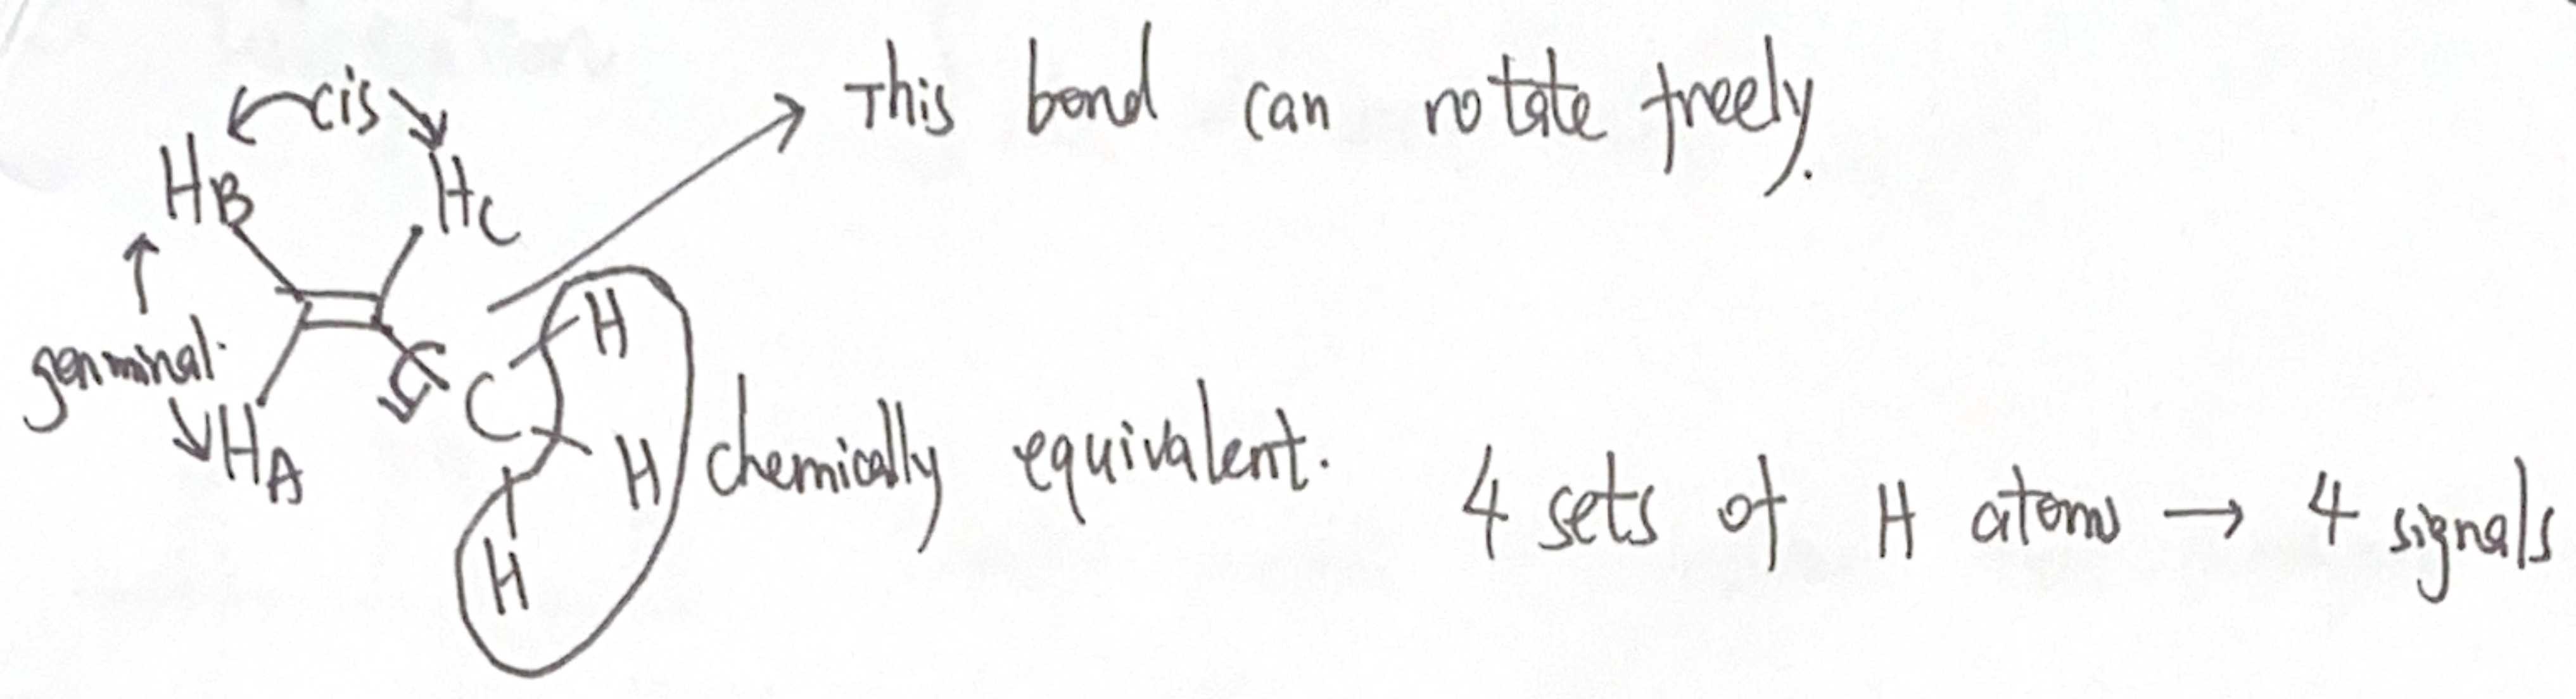 cis
This bond can rotate freely.
HB
HC
H
genminal.
C
HA
H
chemically equivalent.
4 sets of H atoms → 4 signals
H